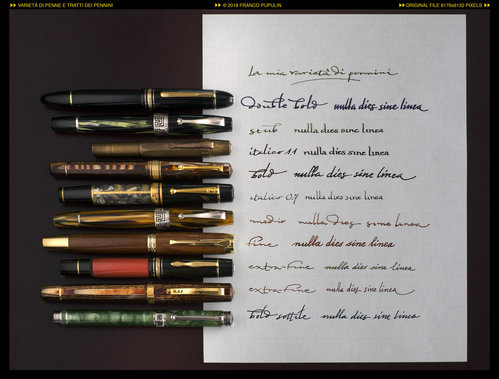 VARIETÀ DI PENNE E TRATTI DEI PENNINI
© 2018 FRANCO PUPULIN
ORIGINAL FILE 8176x6132 PIXELS
La mia varietà di pennini
double bold nulla dies sine linea
stub nulla dies sine linea
italico 1.1 nulla dies sine linea
bold nulla dies sine linea
italico 0,7 nulla dies sine linea
medio nulla dies sine linea
fine nulla dies sine linea
extra-fine nulla dies sine linea
extra-fine nulla dies sine linea
bold sottile nulla dies sine linea